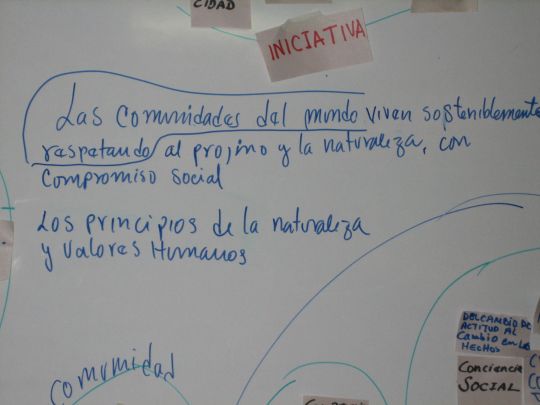 CIDAD
INICIATIVA
Las comunidades del mundo viven sosteniblemente
respetando al projimo y la naturaleza, con
compromiso social
Los principios de la naturaleza
y valores Humanos
comunidad
DEL CAMBIO DE
ACTITUD AL
Cambio en los
HECHOS
Conciencia
SOCIAL